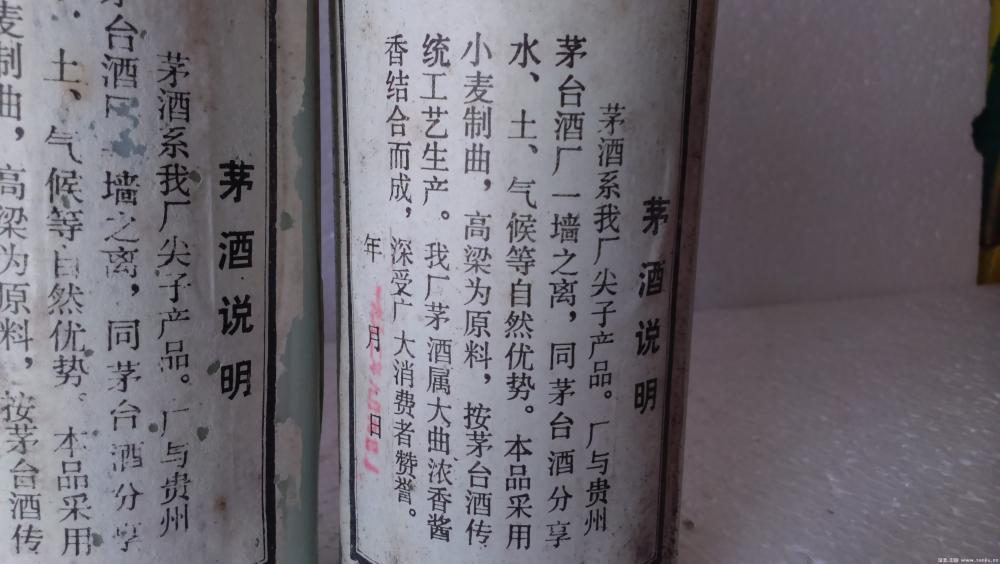 茅酒说明
茅酒系我厂尖子产品。厂与贵州
茅台酒厂一墙之离，同茅台酒分享
水、土、气候等自然优势。本品采用
小麦制曲，高梁为原料，按茅台酒传
统工艺生产。我厂茅酒属大曲浓香酱
香结合而成，深受广大消费者赞誉。
年月日
茅酒说明
茅酒系我厂尖子产品。厂与贵州
茅台酒厂墙之离，同茅台酒分享
土、气候等自然优势。本品采用
麦制曲，高梁为原料，按茅台酒传